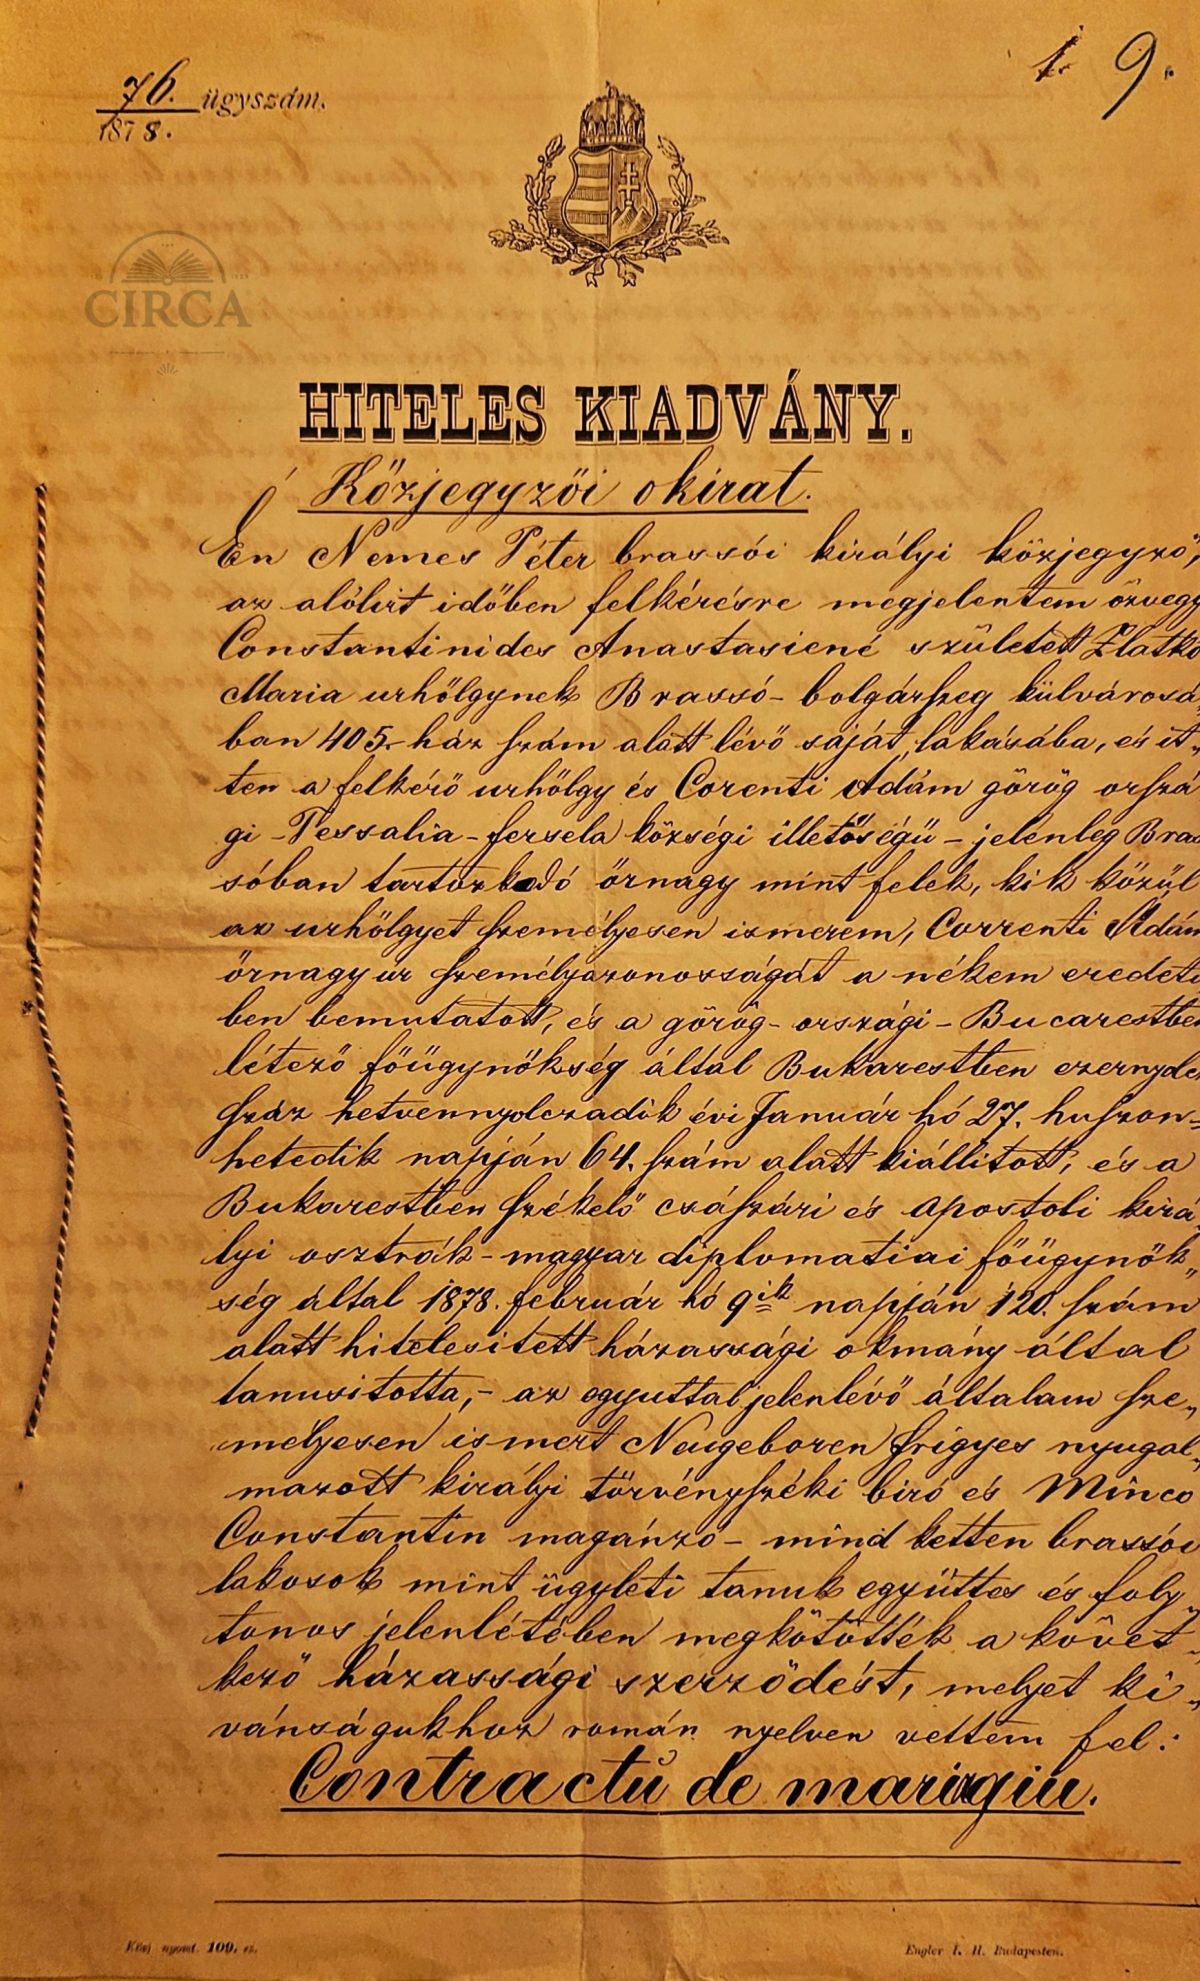 76. ügyszám.
1878.
1. 9.
CIRCA
HITELES KIADVÁNY.
Közjegyzői okirat.
Én Nemes Péter brassói királyi közjegyző,
az alólirt időben felkérésre megjelentem özvegy
Constantinides Anastasiené született Zlatko
Maria urhölgynek Brassó-bolgárszeg külvárosá-
ban 405. ház szám alatt lévő saját lakásába, és it-
ten a felkérő urhölgy és Corenti Ádám görög orszá
gi - Tessalia - fersela községi illetőségű - jelenleg Bras
sóban tartozkodó őrnagy mint felek, kik közül
az urhölgyet személyesen ismerem, Correnti Ádám
őrnagy úr személyazonosságát a nékem eredeti
ben bemutatott, és a görög-országi - Bucarestben
létező főügynökség által Bukarestben ezernyolc
száz hetvennyolczadik évi Január hó 27. huszon-
hetedik napján 64. szám alatt kiállitott, és a
Bukarestben székelő császári és apostoli kirá
lyi osztrák-magyar diplomatiai főügynök-
ség által 1878. február hó 9ik napján 120. szám
alatt hitelesitett házassági okmány által
tanusitotta, - az egyuttal jelenlévő általam sze-
mélyesen ismert Neugeboren Frigyes nyugal-
mazott királyi törvényszéki biró és Minco
Constantin magánzó - mind ketten brassói
lakosok mint ügyleti tanuk együttes és foly-
tonos jelenlétében megkötötték a követ-
kező házassági szerződést, melyet ki-
vánságukhoz román nyelven vettem fel:
Contractŭ de mariagiu.
Közj nyomt. 109. sz.
Engler I. H. Budapesten.